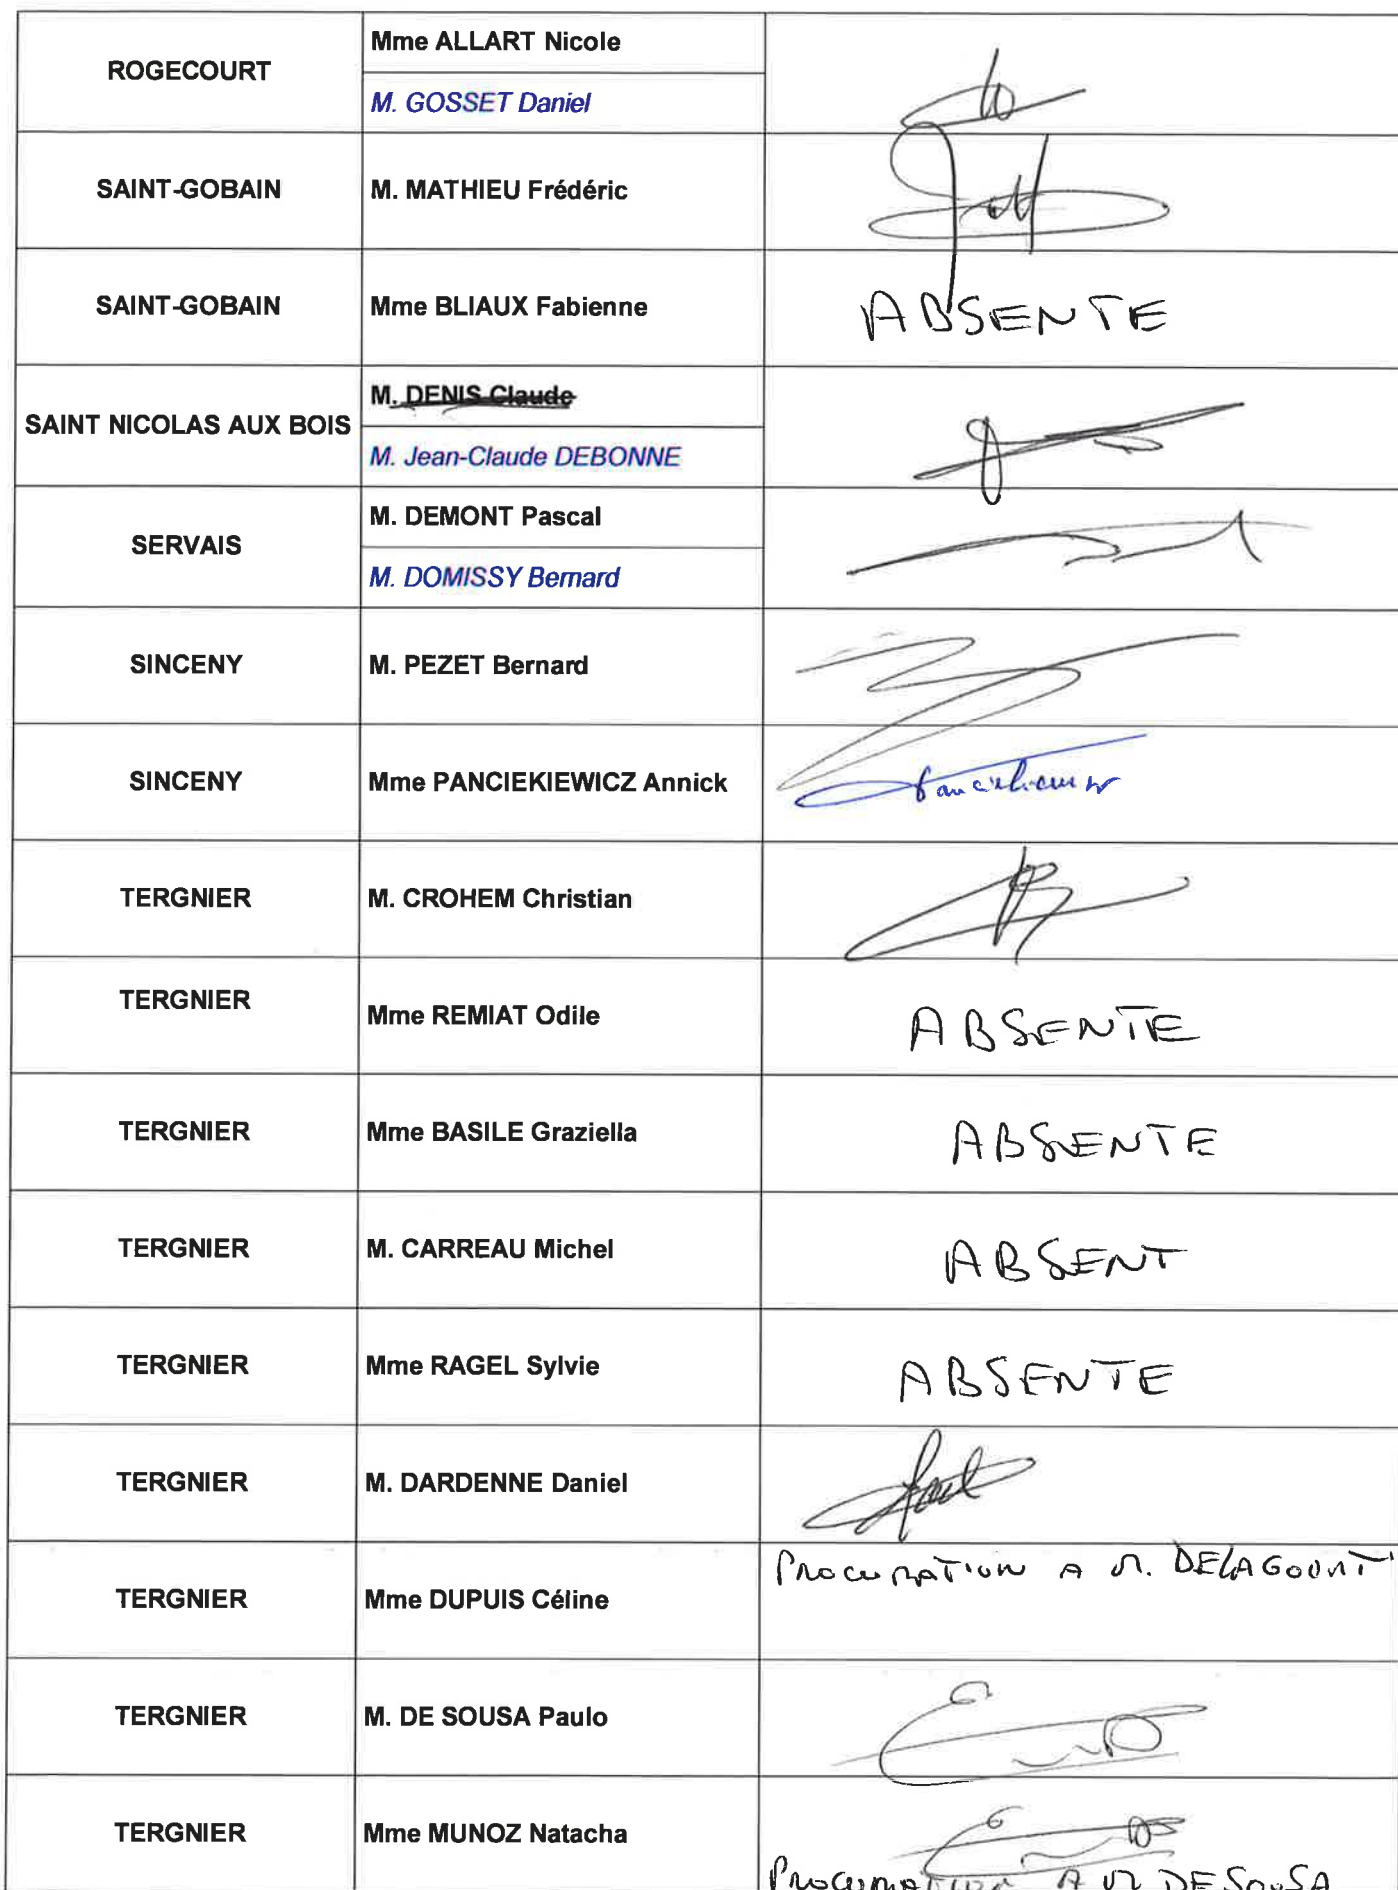 ROGECOURT
Mme ALLART Nicole
M. GOSSET Daniel
SAINT-GOBAIN
M. MATHIEU Frédéric
SAINT-GOBAIN
Mme BLIAUX Fabienne
ABSENTE
SAINT NICOLAS AUX BOIS
M. DENIS Claude
M. Jean-Claude DEBONNE
SERVAIS
M. DEMONT Pascal
M. DOMISSY Bernard
SINCENY
M. PEZET Bernard
SINCENY
Mme PANCIEKIEWICZ Annick
TERGNIER
M. CROHEM Christian
TERGNIER
Mme REMIAT Odile
ABSENTE
TERGNIER
Mme BASILE Graziella
ABSENTE
TERGNIER
M. CARREAU Michel
ABSENT
TERGNIER
Mme RAGEL Sylvie
ABSENTE
TERGNIER
M. DARDENNE Daniel
TERGNIER
Mme DUPUIS Céline
PROCURATION A M. DELAGOURT
TERGNIER
M. DE SOUSA Paulo
TERGNIER
Mme MUNOZ Natacha
PROCURATION A M DE SOUSA